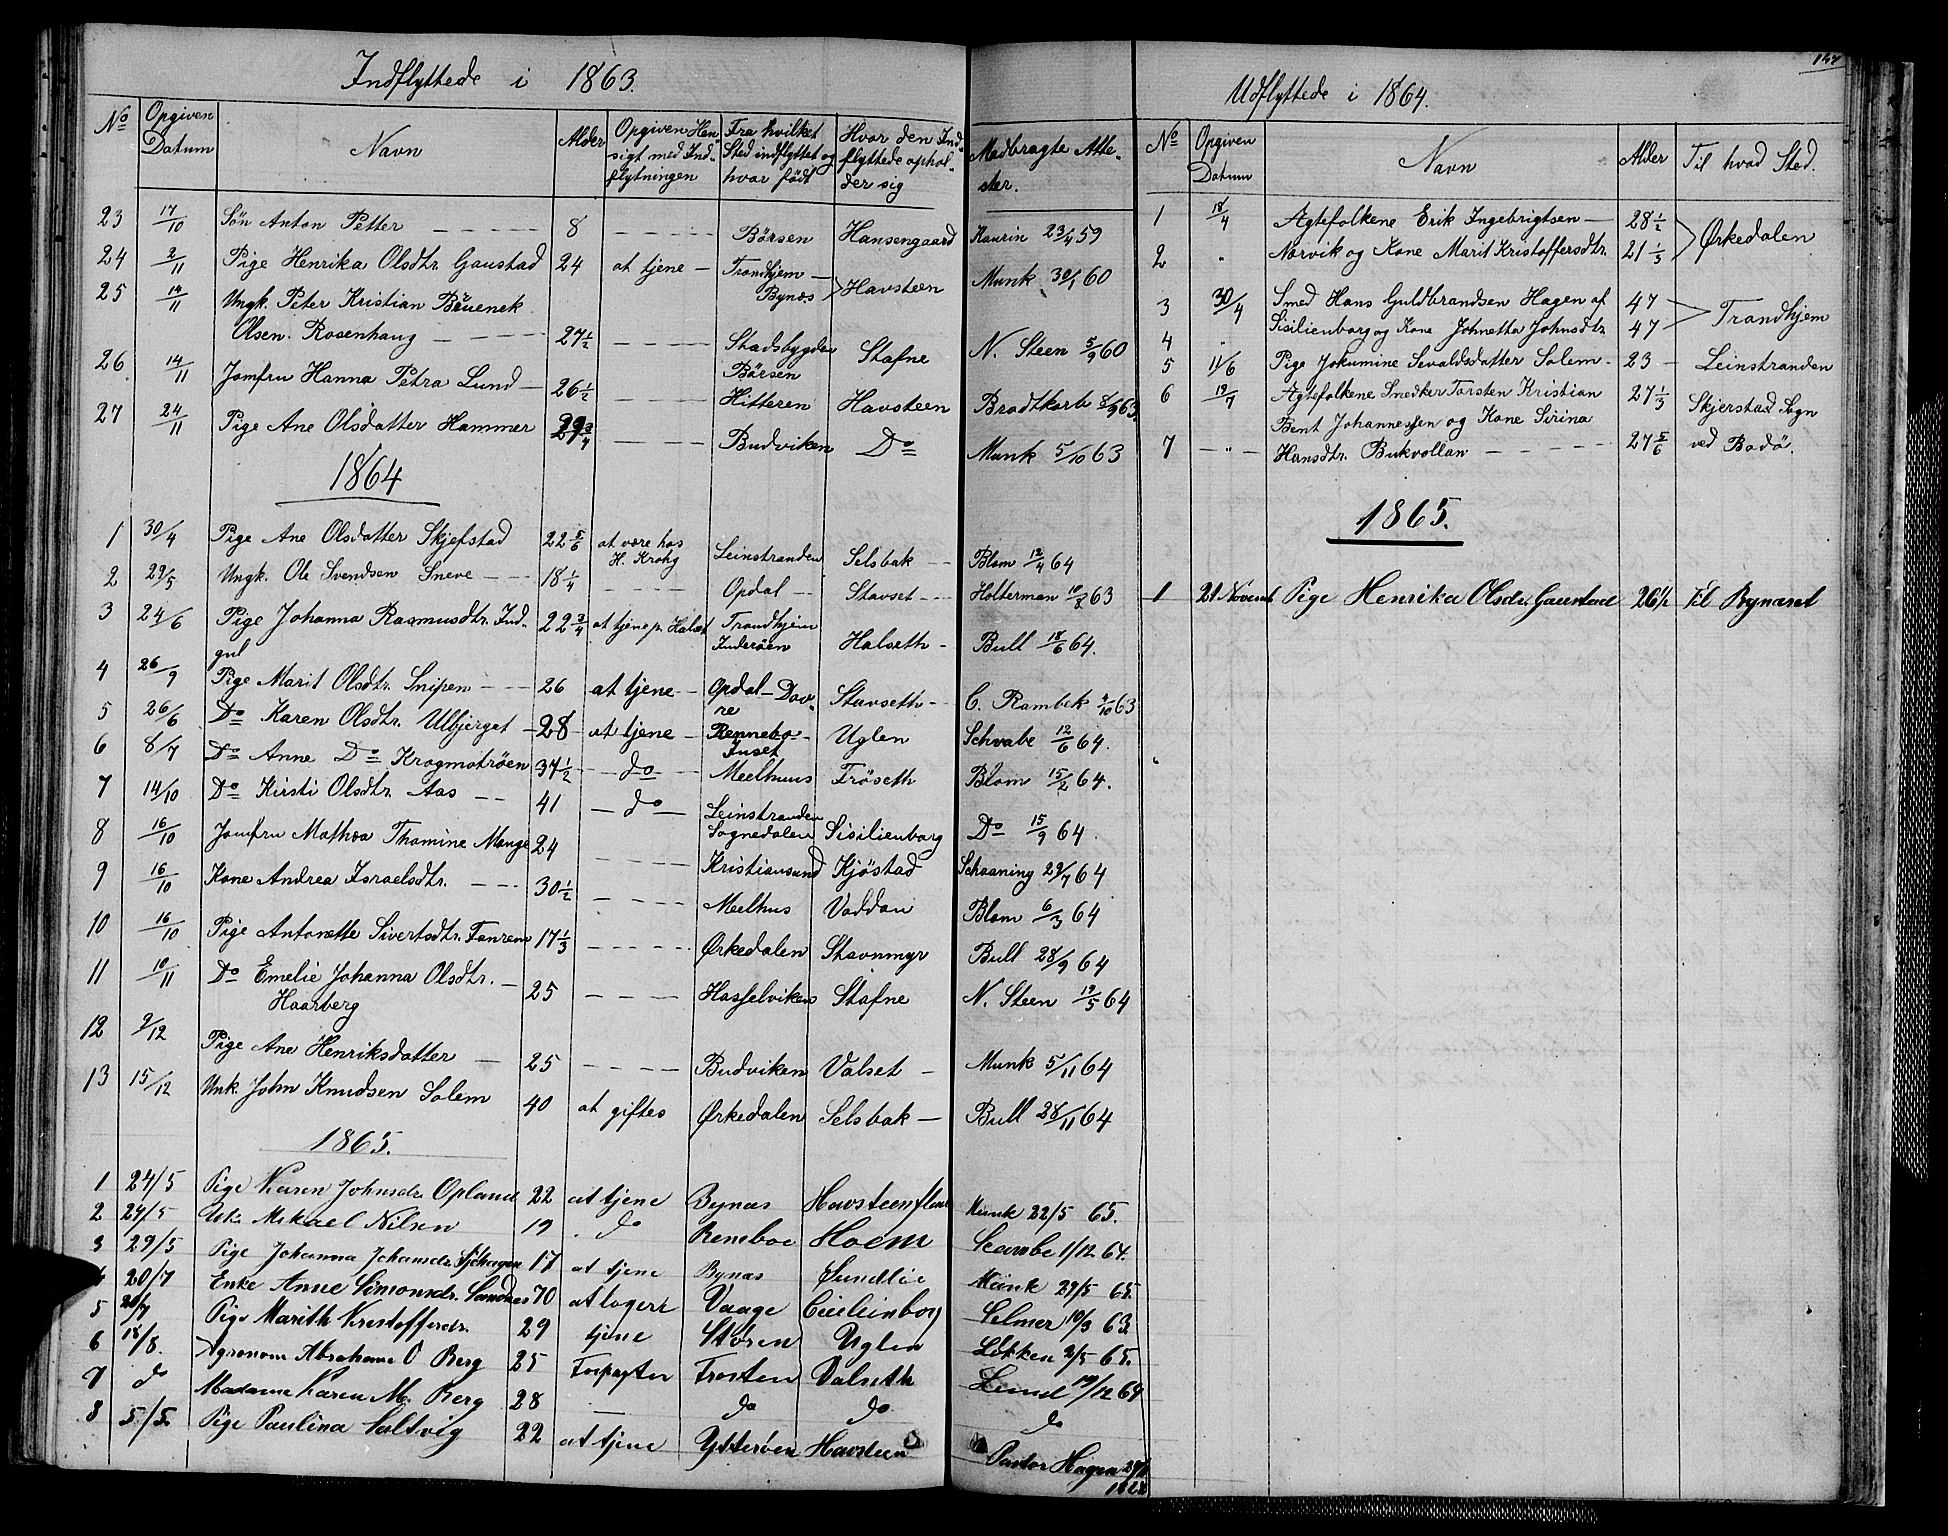 Indflyttede i 1863.
No Opgiven Datum Navn Alder Opgiven Hensigt med Indflytningen Fra hvilket Sted indflyttet og hvor født Hvor den Indflyttede opholder sig Medbragte Attester.
23 17/10 Søn Anton Petter 8 Børsen Hansengaard Kaurin 23/4 59
24 2/11 Pige Henrika Olsdtr. Gaustad 24 at tjene Trondhjem Bynæs Havsteen Munk 30/1 60
25 14/11 Ungk. Peter Kristian
Olsen Rosenhaug 27 1/2 Stadsbygden Børsen Stafne N. Steen 5/9 60
26 14/11 Jomfru Hanna Petra Lund 26 1/2 Hitteren Havsteen Brodtkorb 8/9 63
27 24/11 Pige Ane Olsdatter Hammer 29 3/4 Budviken Do Munk 5/10 63
1864
1 30/4 Pige Ane Olsdatter Skjefstad 22 5/6 at være hos H. Krohg Leinstranden Selsbak Blom 12/4 64
2 29/5 Ungk. Ole Svendsen Sneve 18 1/4 Opdal Stavset Holterman 10/8 63
3 24/6 Pige Johanna Rasmusdtr. Ind-
gul 22 3/4 at tjene p. Halset Trondhjem Inderøen Halseth Bull 18/6 64.
4 26/9 Pige Marit Olsdtr. Snipen 26 at tjene Opdal - Dovre Stavseth C. Rambek 4/10 63
5 26/6 Do Karen Olsdtr. Ulbjerget 28 at tjene Rennebo Inset Uglen Schvabe 12/6 64.
6 8/7 Do Anne Do Krogmotrøen 37 1/2 do Meelhuus Frøseth Blom 15/2 64.
7 14/10 Do Kirsti Olsdtr. Aas 41 do Leinstranden Sognedalen Sisilienborg Do 15/9 64.
8 16/10 Jomfru Mathea Thomine Monge 24 Kristiansund Kjøstad Schaaning 29/7 64
9 16/10 Kone Andrea Israelsdtr. 30 1/2 Meelhus Voddan Blom 6/3 64
10 16/10 Pige Antonette Sivertsdtr. Fanrem 17 1/3 Ørkedalen Stavnmyr Bull 28/9 64
11 10/11 Do Emelie Johanna Olsdtr.
Haarberg 25 Hasselviken Stafne N. Steen 19/5 64
12 9/12 Pige Ane Henriksdatter 25 Budviken Valset Munk 5/11 64
13 15/12 Unk. John Knudsen Solem 40 at giftes Ørkedalen Selsbak Bull 28/11 64
1865.
1 24/5 Pige Karen Johnsdr. Opland 22 at tjene Bynæs Munk 22/5 65.
2 24/5 Uk. Mikael Nilsen 19 do Reneboe Hoem 1/12 64.
3 29/5 Pige Johanna 17 at tjene Bynæs Sundlie Munk 29/5 65.
4 20/7 Enke Anne Simonsdr. Sandnes 70 at logere Vaage Selmer 10/3 63
5 20/7 Pige Marith Krestoffersdr. 29 tjene Støren Uglen Løkken 2/5 65.
6 18/8. Agronom Abraham O Berg 25 Forpagter Frosten Valseth Lund 19/12 64
7 do Madame Karen M. Berg 28 do do do
8 5/5. Pige Paulina Saltvig 22 at tjene Ytterøen Havsteen Pastor Hagen
147
Udflyttede i 1864.
No Opgiven Datum Navn Alder Til hvad Sted.
1 18/4 Agtefolkene Erik Ingebrigtsen 28 1/2 Ørkedalen
2 " Norvik og Kone Marit Kristoffersdtr. 21 1/3
3 30/4 Smed Hans Guldbrandsen Hagen af 47 Trondhjem
4 " Sisilienborg og Kone Johnetta Johnsdtr 47
5 11/6 Pige Jokumine Sevaldsdatter Solem 23 Leinstranden
6 19/7 Agtefolkene Snedker Torsten Kristian 27 1/3 Skjerstad Sogn
Bent Johannessen og Kone Sirina
7 " Hansdtr. Bukvollan 27 5/6 ved Bodø.
1865.
1 21 Novemb Pige Henrika Olsdr. Gaustad 26 1/2 Til Bynæset